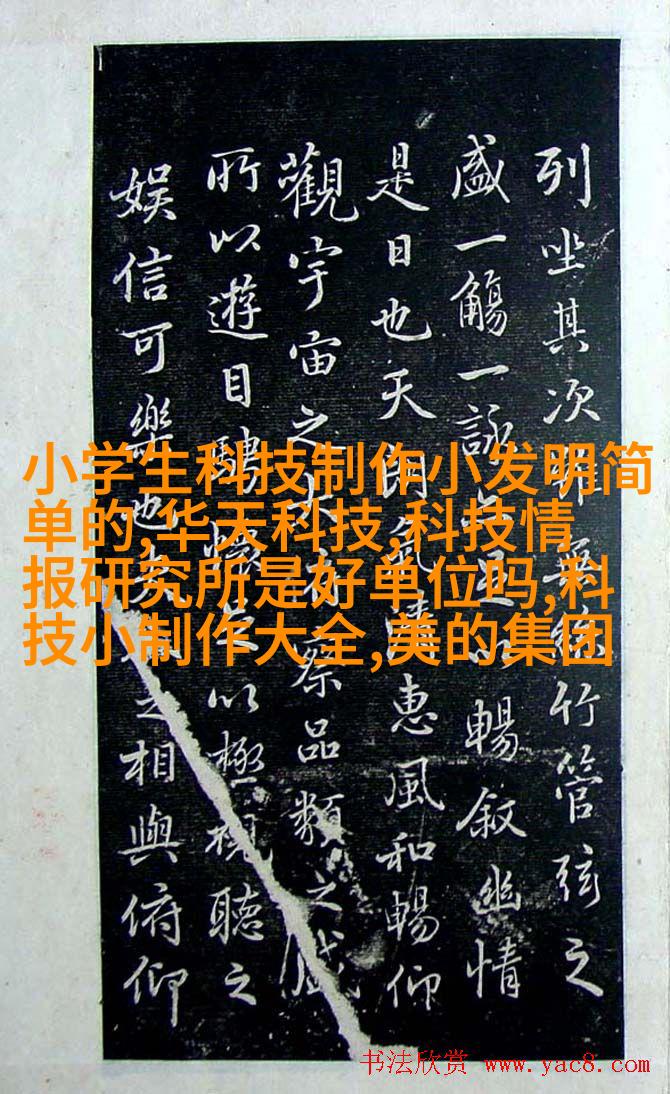 列坐其次雖無絲竹管弦之
盛一觴一詠亦足以暢叙幽情
是日也天朗氣清惠風和暢仰
觀宇宙之大俯察品類之盛
所以遊目騁懷足以極視聽之
娱信可樂也夫人之相與俯仰
小学生科技制作小发明简
单的,华天科技,科技情
报研究所是好单位吗,科
技小制作大全,美的集团
书法欣赏 www.yac8.com